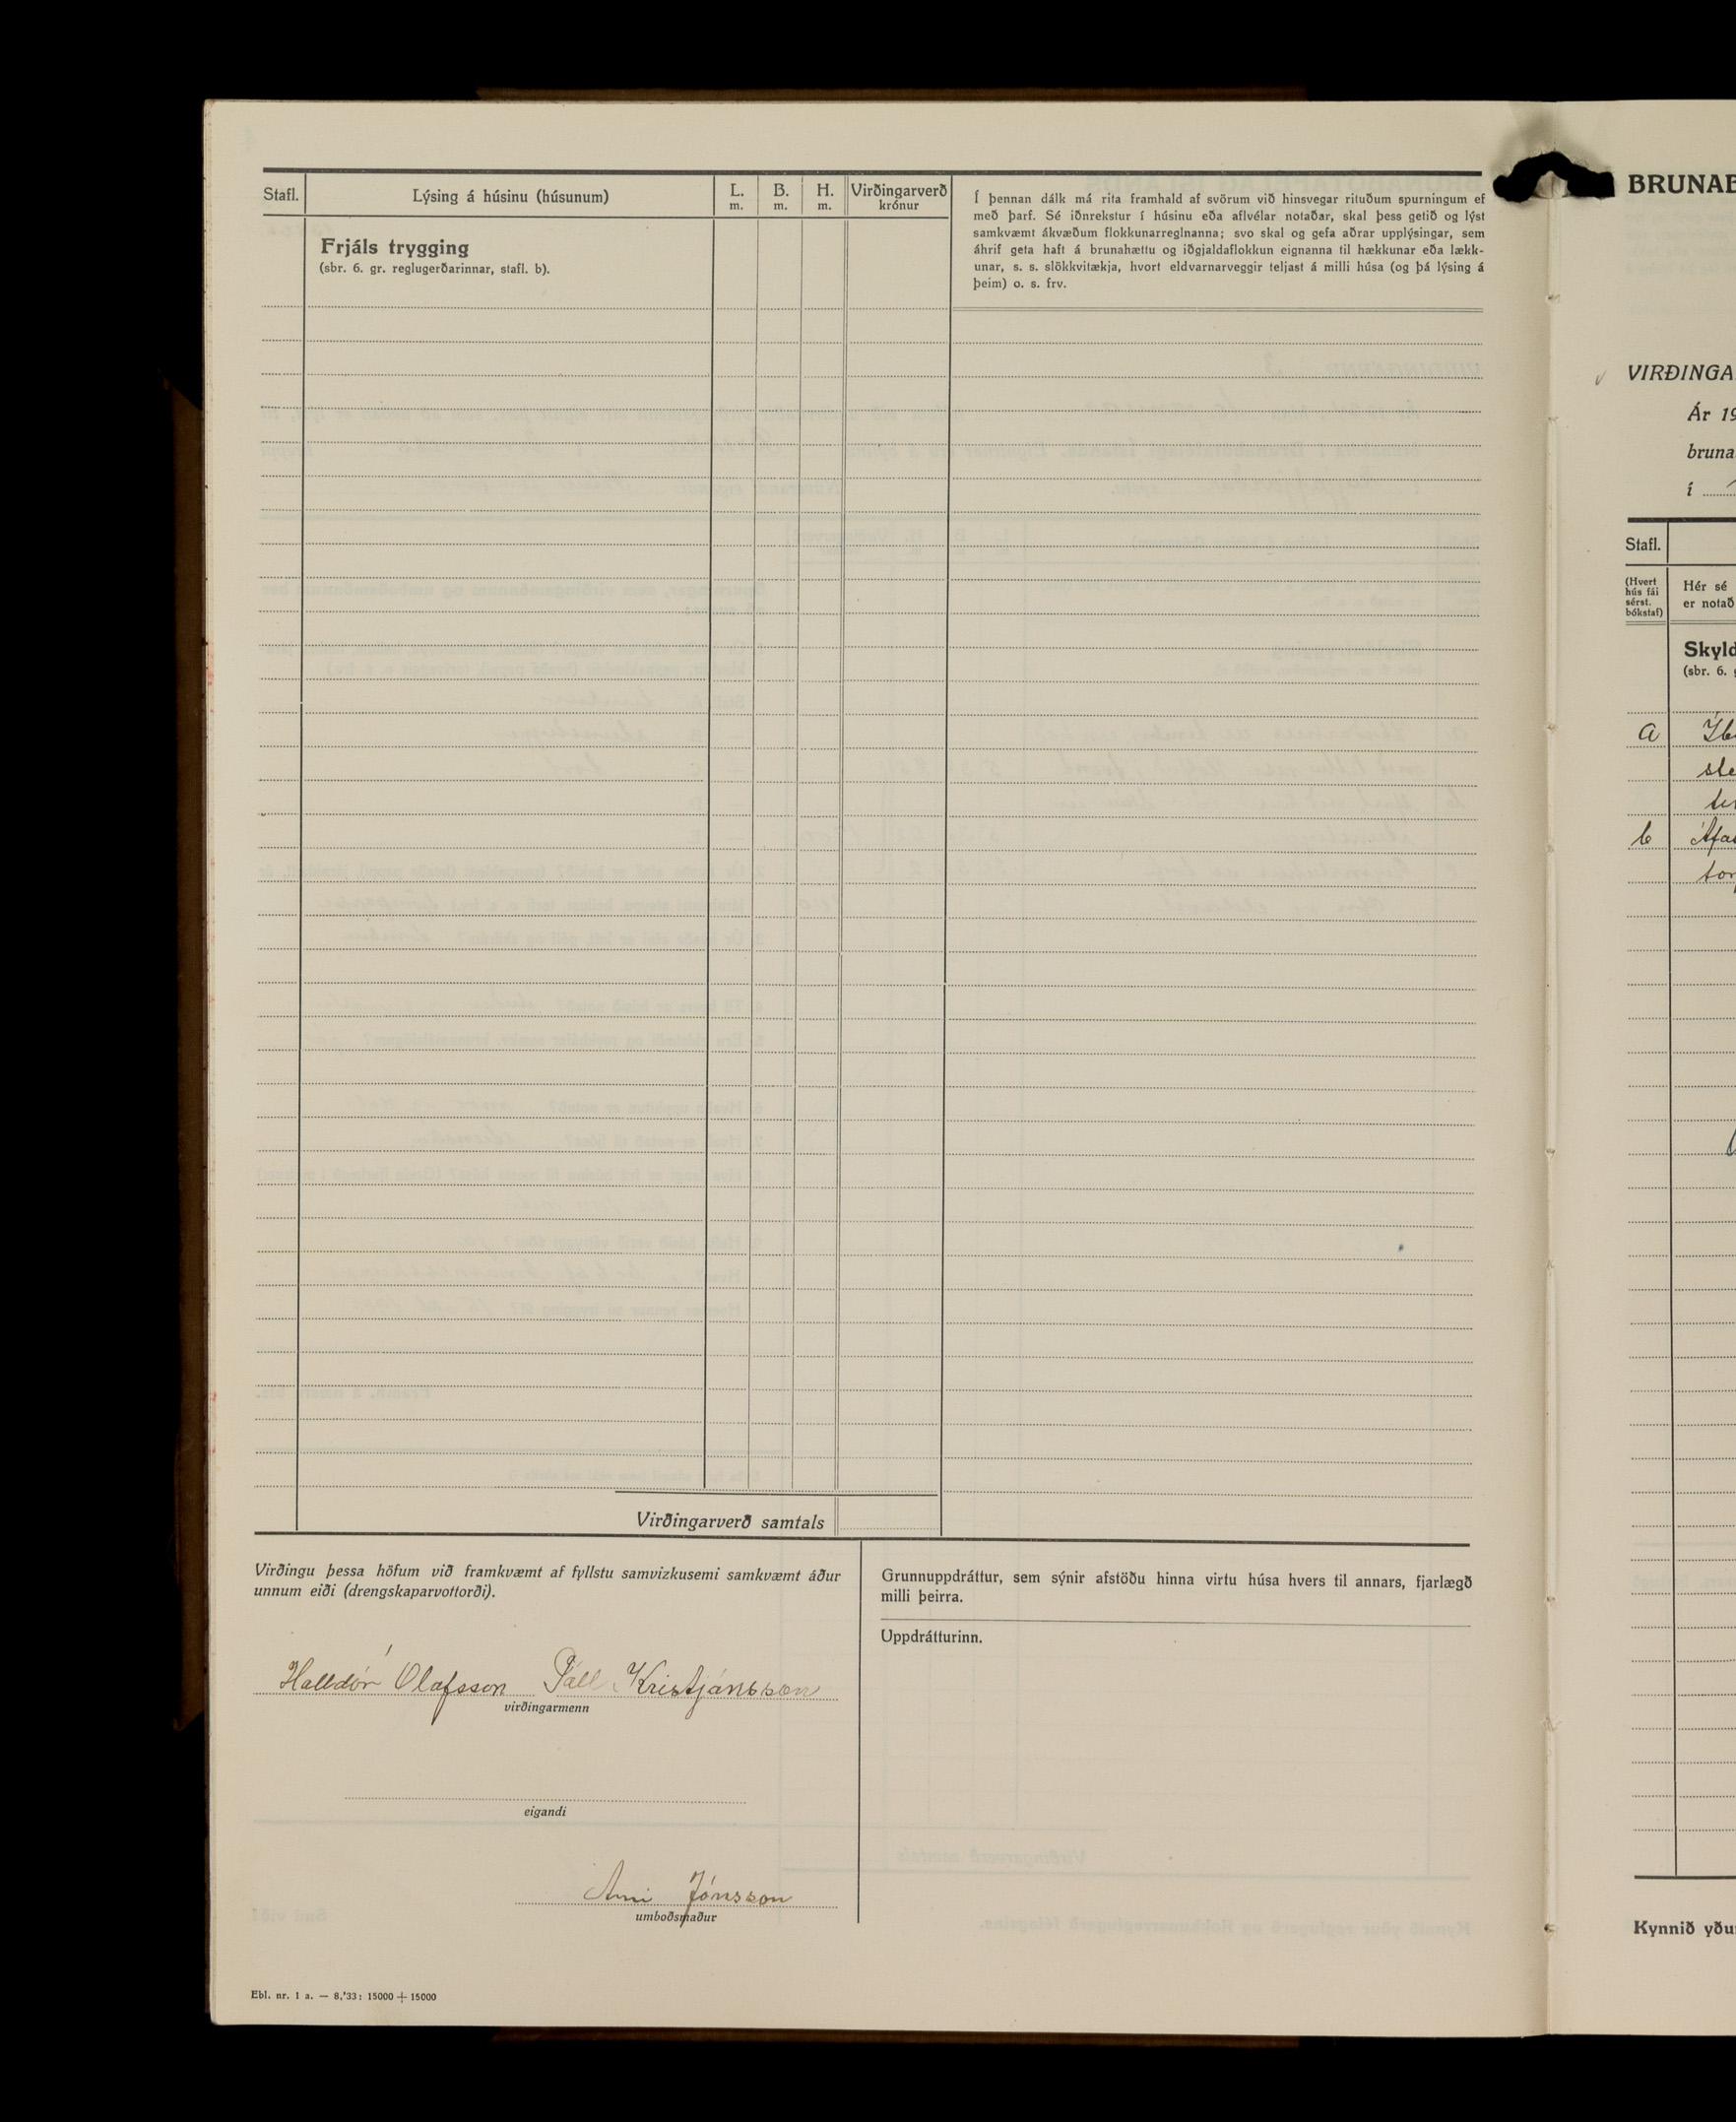 Stafl.
Lýsing á húsinu (húsunum)
L.
m.
B.
m.
H.
m.
Virðingarverð
krónur
Frjáls trygging
(sbr. 6. gr. reglugerðarinnar, stafl. b).
Í þennan dálk má rita framhald af svörum við hinsvegar rituðum spurningum ef
með þarf. Sé iðnrekstur í húsinu eða aflvélar notaðar, skal þess getið og lýst
samkvæmt ákvæðum flokkunarreglnanna; svo skal og gefa aðrar upplýsingar, sem
áhrif geta haft á brunahættu og iðgjaldaflokkun eignanna til hækkunar eða lækk-
unar, s. s. slökkvitækja, hvort eldvarnarveggir teljast á milli húsa (og þá lýsing á
þeim) o. s. frv.
Virðingarverð samtals
Virðingu þessa höfum við framkvæmt af fyllstu samvizkusemi samkvæmt áður
unnum eiði (drengskaparvottorði).
Halldór Ólafsson Páll Kristjánsson
virðingarmenn
eigandi
Árni Jónsson
umboðsmaður
Grunnuppdráttur, sem sýnir afstöðu hinna virtu húsa hvers til annars, fjarlægð
milli þeirra.
Uppdrátturinn.
Ebl. nr. 1 a. — 8,'33: 15000 + 15000
BRUNAB
VIRÐINGA
Ár 19
bruna
í
Stafl.
(Hvert
hús fái
sérst.
bókstaf)
Hér sé
er notað
Skyld
(sbr. 6. g
a
ste
b
Kynnið yður